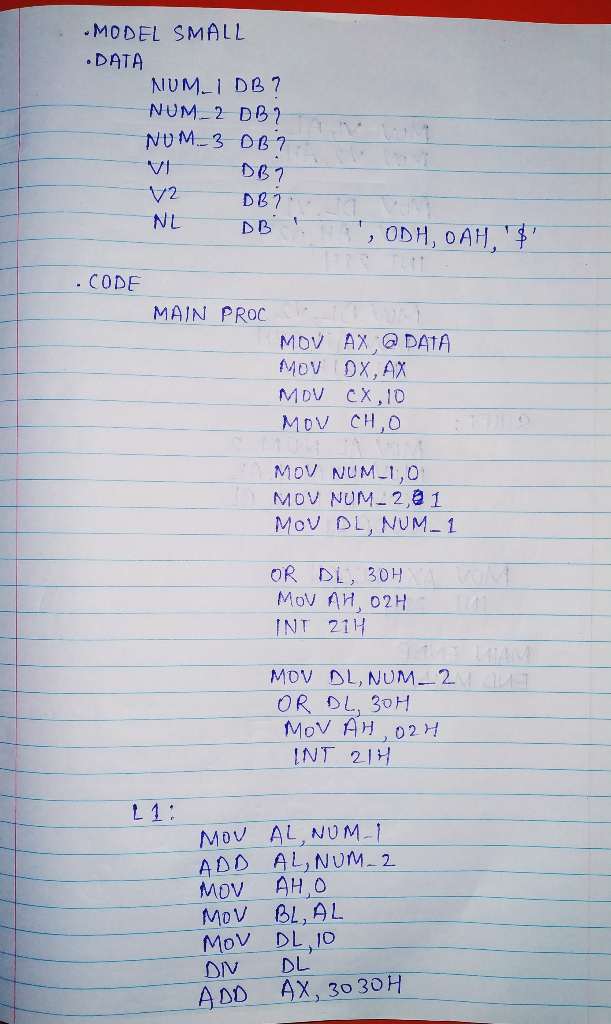 .MODEL SMALL
.DATA
NUM_1 DB ?
NUM_2 DB ?
NUM_3 DB ?
V1 DB ?
V2 DB ?
NL DB ' ', 0DH, 0AH, '$'
.CODE
MAIN PROC
MOV AX, @DATA
MOV DX, AX
MOV CX, 10
MOV CH, 0
MOV NUM_1, 0
MOV NUM_2, 1
MOV DL, NUM_1
OR DL, 30H
MOV AH, 02H
INT 21H
MOV DL, NUM_2
OR DL, 30H
MOV AH, 02H
INT 21H
L1:
MOV AL, NUM_1
ADD AL, NUM_2
MOV AH, 0
MOV BL, AL
MOV DL, 10
DIV DL
ADD AX, 3030H